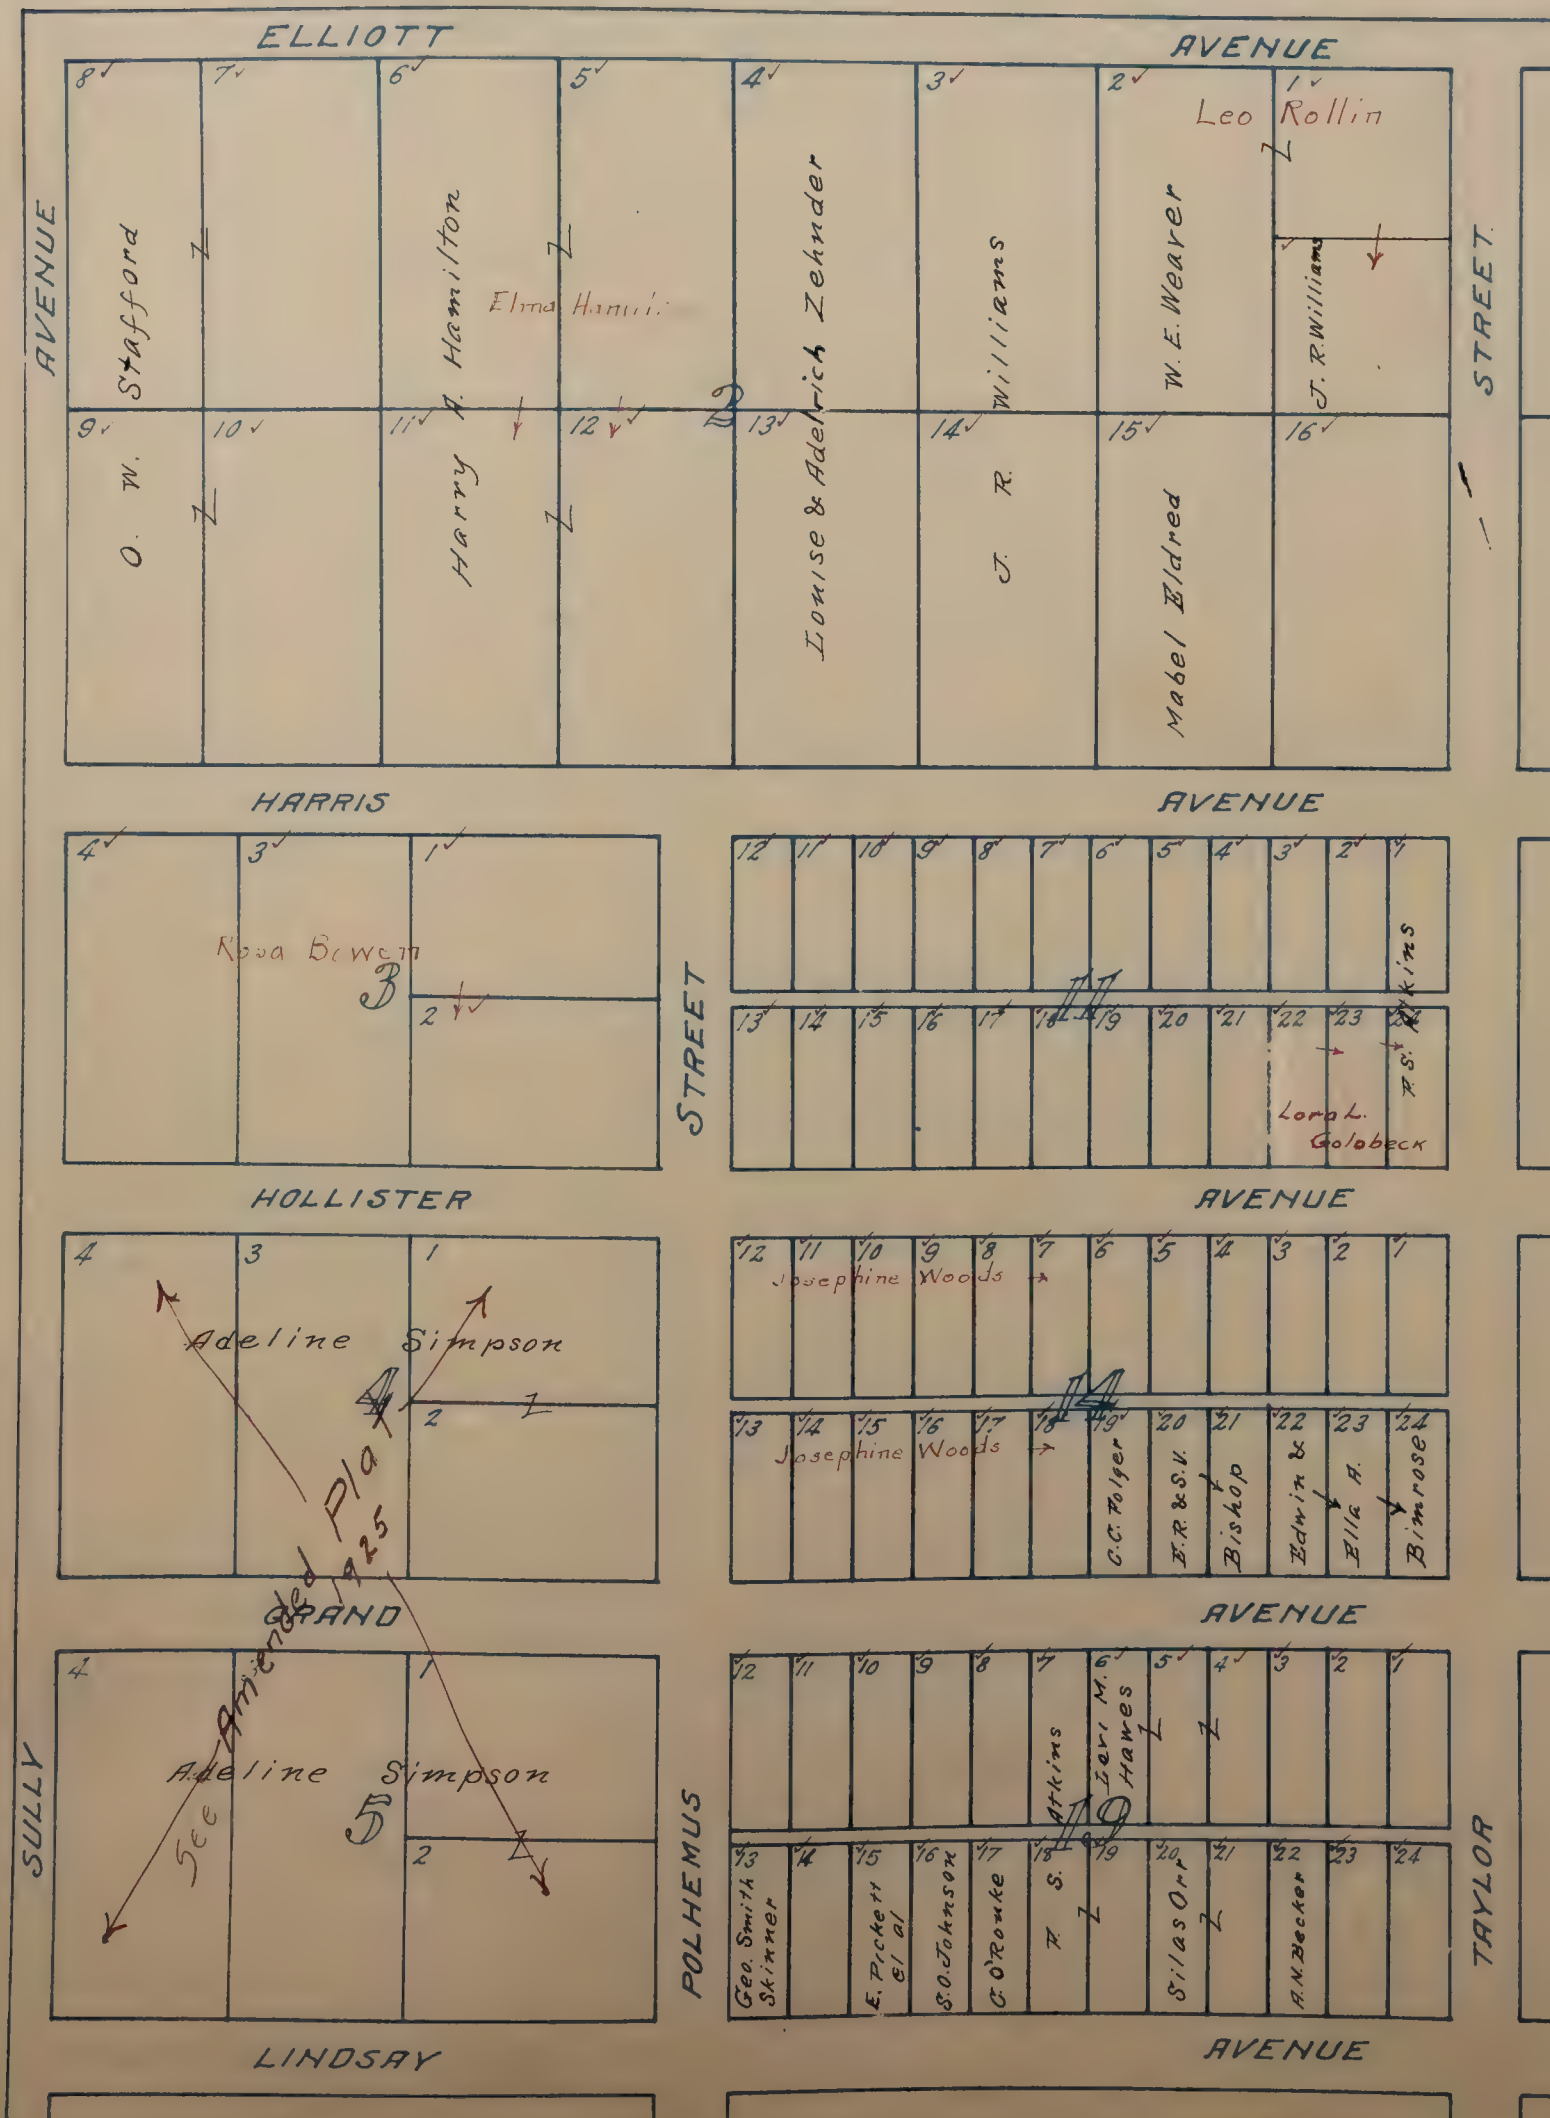 ELLIOTT AVENUE
8 7 6 5 4 3 2 1
Leo Rollin
AVENUE
O. W. Stafford
Harry A. Hamilton
Elma
Louise & Adelrich Zehnder
J. R. Williams
W. E. Weaver
J. R. Williams
STREET
2
9 10 11 12 13 14 15 16
Mabel Eldred
HARRIS AVENUE
4 3 1
Rosa Bowen
3
2
STREET
12 11 10 9 8 7 6 5 4 3 2 1
11
13 14 15 16 17 18 19 20 21 22 23 24
P. S. Atkins
Lora L.
Golobeck
HOLLISTER AVENUE
4 3 1
Adeline Simpson
4
2
12 11 10 9 8 7 6 5 4 3 2 1
Josephine Woods
14
13 14 15 16 17 18 19 20 21 22 23 24
Josephine Woods
C. C. Folger
E. R. & S. V.
Bishop
Edwin &
Ella A.
Bimrose
See Amended Plat
1925
GRAND AVENUE
4 1
Adeline Simpson
5
2
SULLY
POLHEMUS
12 11 10 9 8 7 6 5 4 3 2 1
Levi M.
Hawes
19
13 14 15 16 17 18 19 20 21 22 23 24
Geo. Smith
Skinner
E. Pickett
et al
S. O. Johnson
C. O'Rouke
P. S. Atkins
Silas Orr
A. N. Becker
TAYLOR
LINDSAY AVENUE